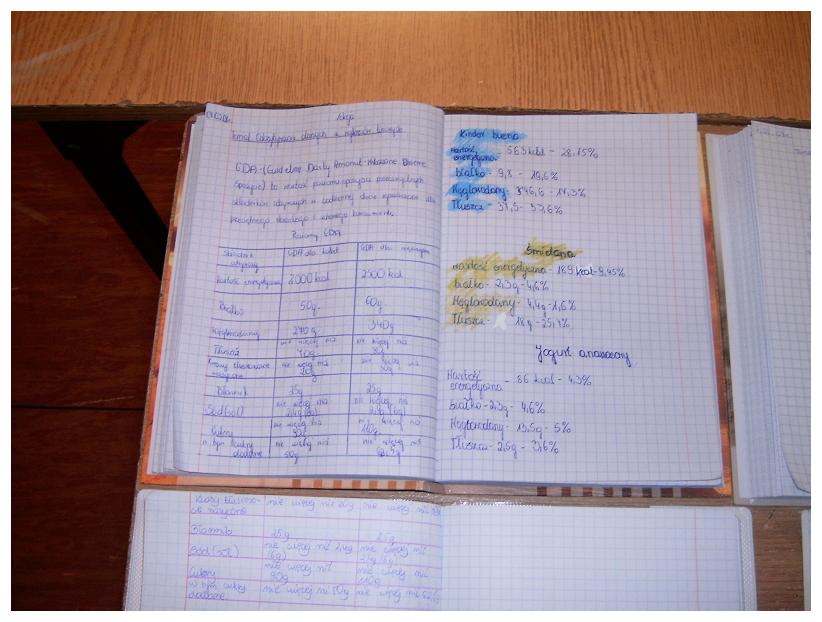 Lekcja
Temat:
GDA - (Guideline Daily Amount - Wskazane Dzienne
Spożycie) to wartość poziomu spożycia poszczególnych
składników odżywczych w codziennej diecie
przeciętnego zdrowego konsumenta
Poziomy GDA
Składnik odżywczy GDA dla kobiet GDA dla mężczyzn
Wartość energetyczna 2000 kcal 2500 kcal
Białko 50g 60g
Węglowodany 270g 340g
Tłuszcz nie więcej niż 70g nie więcej niż
Kwasy tłuszczowe nasycone nie więcej niż 20g nie więcej niż 30g
Błonnik 25g 25g
Sód (sól) nie więcej niż 2,4g (6g) nie więcej niż
Cukry nie więcej niż 90g nie więcej niż 110g
w tym cukry dodane nie więcej niż 50g nie więcej niż
Kinder bueno
Wartość energetyczna - 563 kcal - 28,15%
Białko - 9,8 - 19,6%
Węglowodany - 46,6 - 17,3%
Tłuszcz - 37,5 - 53,6%
Śmietana
Wartość energetyczna - 189 kcal - 9,45%
Białko - 2,3g - 4,6%
Węglowodany - 4,4g - 1,6%
Tłuszcz - 18g - 25,7%
Jogurt ananasowy
Wartość energetyczna - 86 kcal - 4,3%
Białko - 2,3g - 4,6%
Węglowodany - 13,5g - 5%
Tłuszcz - 2,5g - 3,6%
nie więcej niż nie więcej niż
Błonnik 25g 25g
Sód (sól) nie więcej niż 2,4g (6g) nie więcej niż 2,4g (6g)
Cukry nie więcej niż 90g nie więcej niż 110g
w tym cukry dodane nie więcej niż 50g nie więcej niż